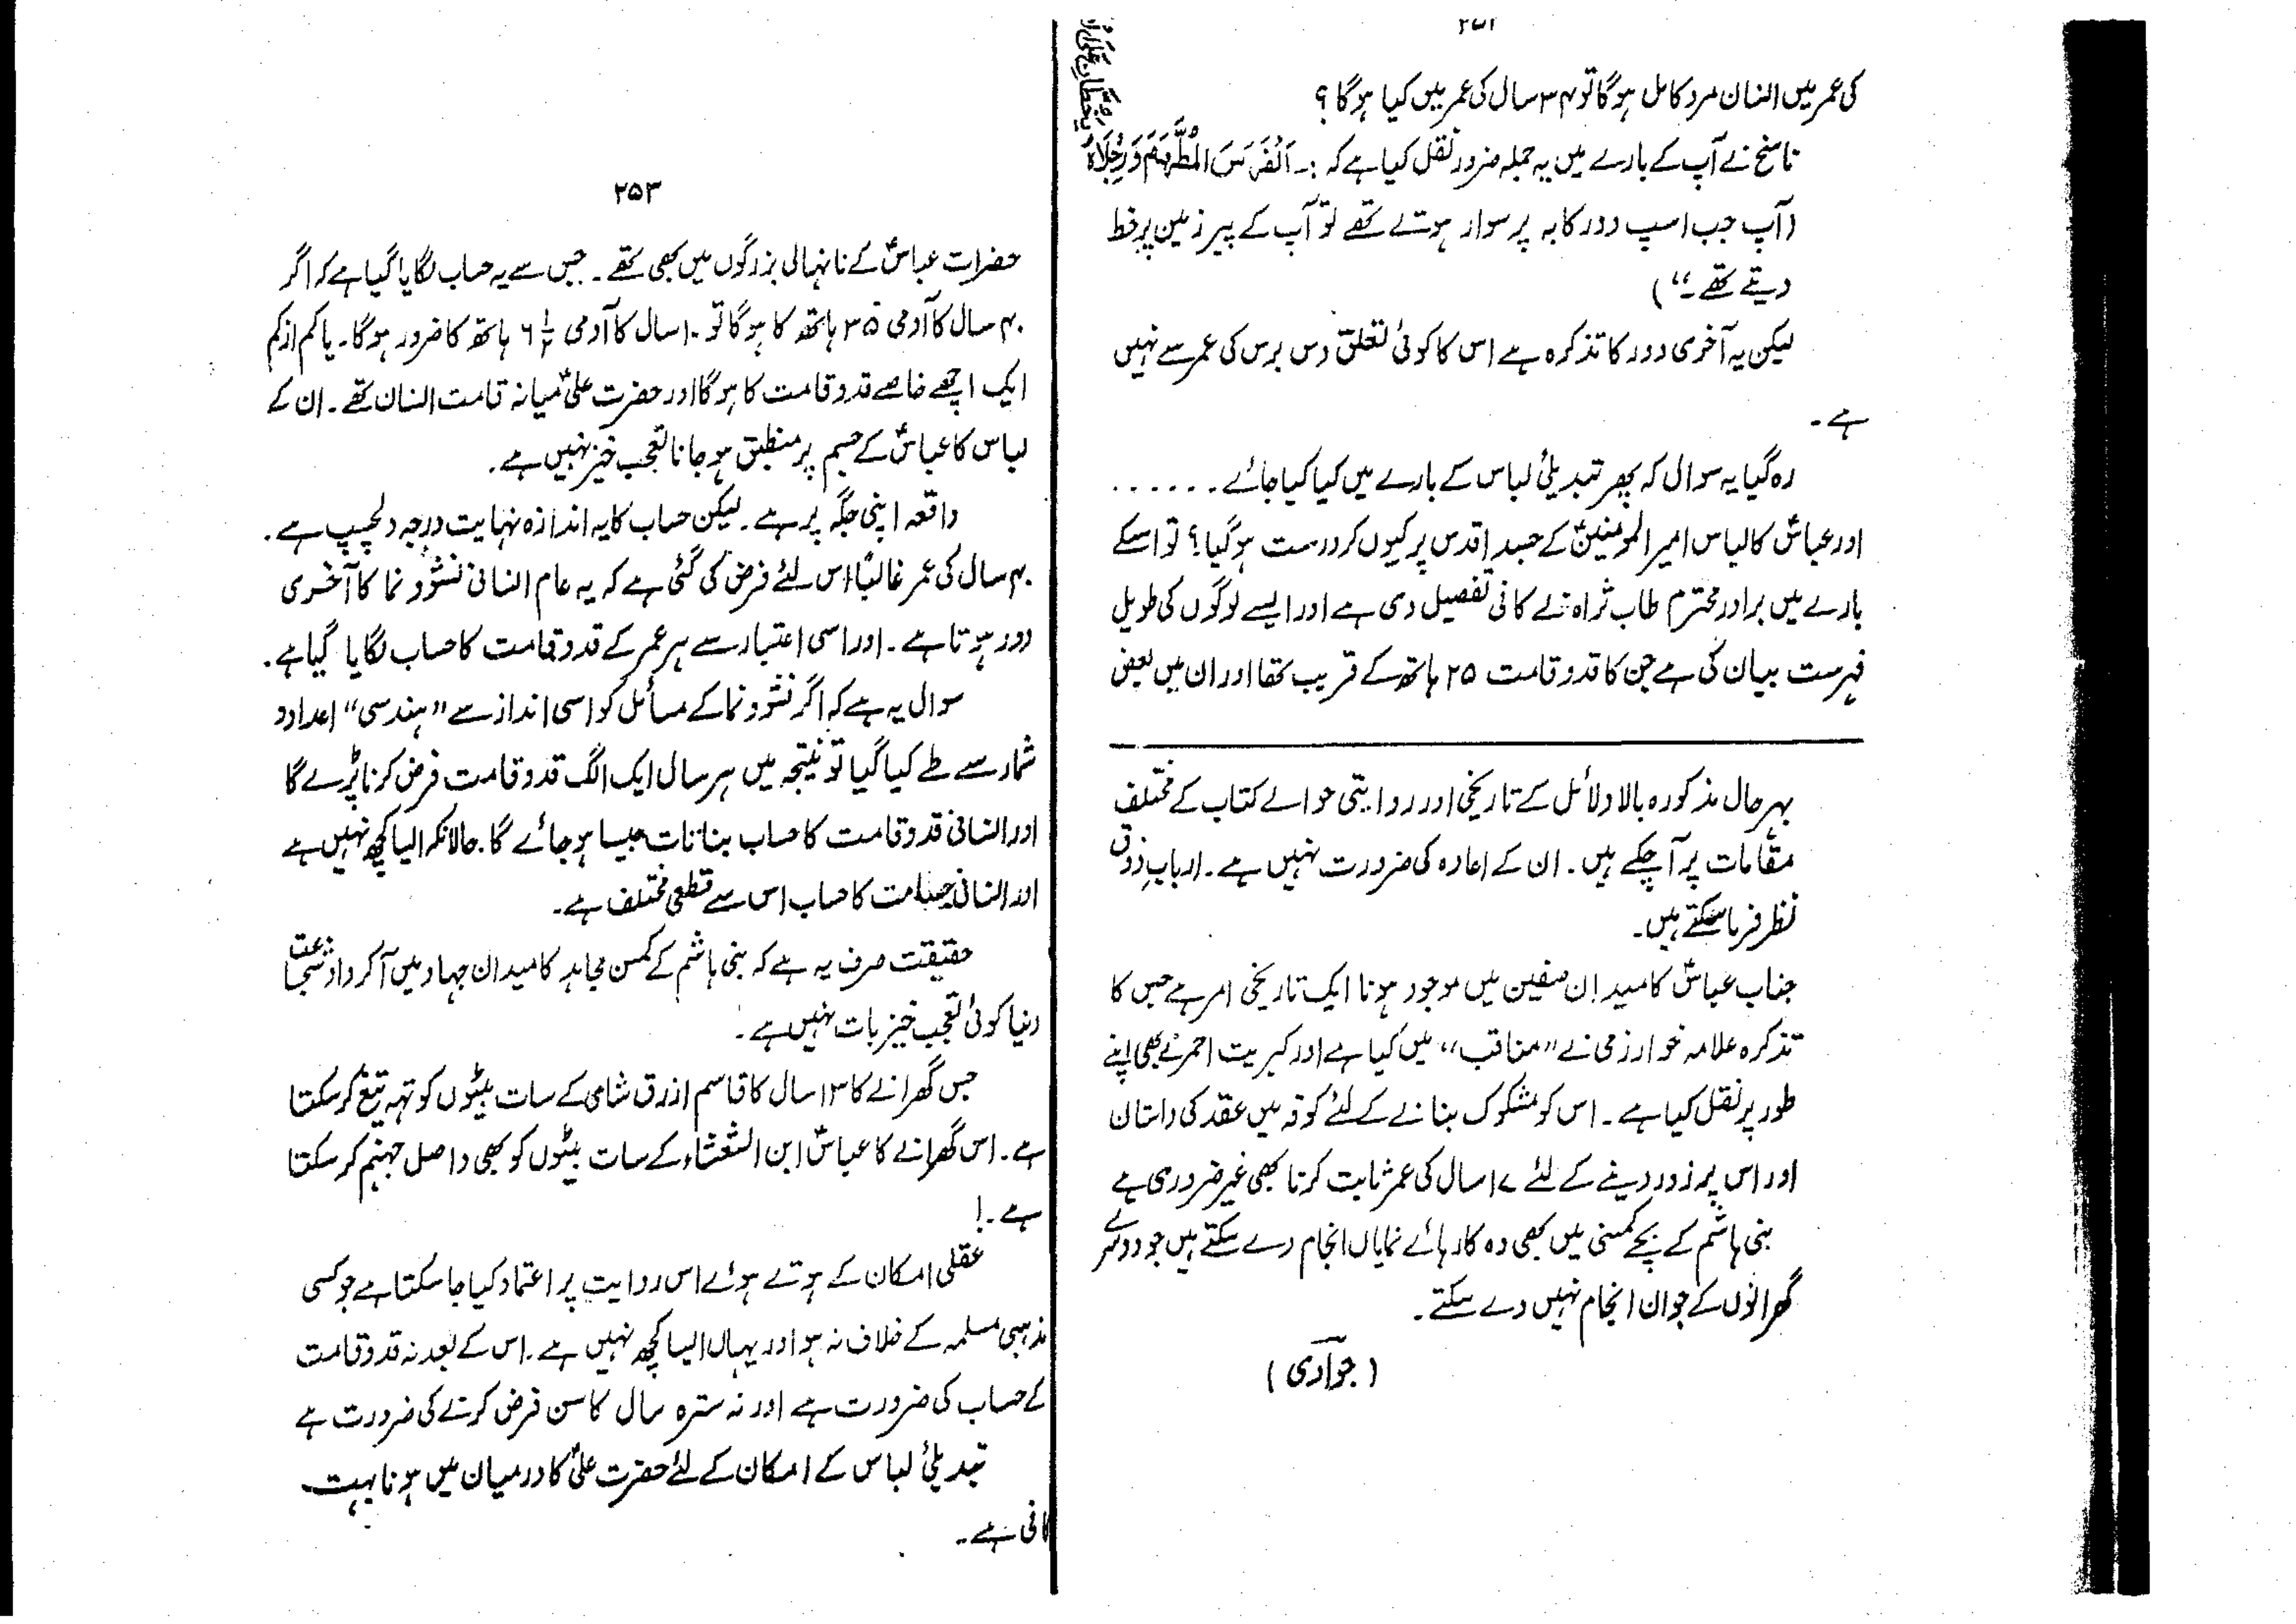 ۲۵۲
کی عمر میں انسان مرد کامل ہوگا تو ۳۴ سال کی عمر میں کیا ہوگا؟
ناسخ نے آپ کے بارے میں یہ جملہ ضرور نقل کیا ہے کہ :۔ اَلْفَرَسَ الْمُطَّهَمَ وَرِجْلَاهُ
(آپ جب اسپ دور کابہ پر سوار ہوتے تھے تو آپ کے پیر زمین پر خط
دیتے تھے۔“)
لیکن یہ آخری دور کا تذکرہ ہے اس کا کوئی تعلق دس برس کی عمر سے نہیں
ہے۔
رہ گیا یہ سوال کہ پھر تبدیلیٔ لباس کے بارے میں کیا کیا جائے۔.....
اور عباسؑ کا لباس امیر المومنینؑ کے جسد اقدس پر کیوں کر درست ہوگیا؟ تو اسکے
بارے میں برادر محترم طاب ثراہ نے کافی تفصیل دی ہے اور ایسے لوگوں کی طویل
فہرست بیان کی ہے جن کا قد و قامت ۲۵ ہاتھ کے قریب تھا اور ان میں بعض
بہر حال مذکورہ بالا دلائل کے تاریخی اور روایتی حوالے کتاب کے مختلف
مقامات پر آچکے ہیں۔ ان کے اعادہ کی ضرورت نہیں ہے۔ ارباب ذوق
نظر فرما سکتے ہیں۔
جناب عباسؑ کا میدان صفین میں موجود ہونا ایک تاریخی امر ہے جس کا
تذکرہ علامہ خوارزمی نے ”مناقب“ میں کیا ہے اور کبریت احمر نے بھی اپنے
طور پر نقل کیا ہے۔ اس کو مشکوک بنانے کے لئے کوفہ میں عقد کی داستان
اور اس پر زور دینے کے لئے ۱۷ سال کی عمر ثابت کرنا بھی غیر ضروری ہے
بنی ہاشم کے بچے کمسنی میں بھی وہ کارہائے نمایاں انجام دے سکتے ہیں جو دوسرے
گھرانوں کے جوان انجام نہیں دے سکتے۔
(جوادی)
۲۵۳
حضرات عباسؑ کے نانہالی بزرگوں میں بھی تھے۔ جس سے یہ حساب لگایا گیا ہے کہ اگر
۴۰ سال کا آدمی ۲۵ ہاتھ کا ہوگا تو ۱۰ سال کا آدمی ۶ ۱/۴ ہاتھ کا ضرور ہوگا۔ یا کم از کم
ایک اچھے خاصے قد و قامت کا ہوگا اور حضرت علیؑ میانہ قامت انسان تھے۔ ان کے
لباس کا عباسؑ کے جسم پر منطبق ہو جانا تعجب خیز نہیں ہے۔
واقعہ اپنی جگہ پر ہے۔ لیکن حساب کا یہ اندازہ نہایت درجہ دلچسپ ہے۔
۴۰ سال کی عمر غالباً اس لئے فرض کی گئی ہے کہ یہ عام انسانی نشو و نما کا آخری
دور ہوتا ہے۔ اور اسی اعتبار سے ہر عمر کے قد و قامت کا حساب لگایا گیا ہے۔
سوال یہ ہے کہ اگر نشو و نما کے مسائل کو اسی انداز سے ”ہندسی“ اعداد و
شمار سے طے کیا گیا تو نتیجہ میں ہر سال ایک الگ قد و قامت فرض کرنا پڑے گا
اور انسانی قد و قامت کا حساب بناتات جیسا ہو جائے گا۔ حالانکہ ایسا کچھ نہیں ہے
اور انسانی جسامت کا حساب اس سے قطعی مختلف ہے۔
حقیقت صرف یہ ہے کہ بنی ہاشم کے کمسن مجاہد کا میدان جہاد میں آکر داد شجاعت
دنیا کوئی تعجب خیز بات نہیں ہے۔
جس گھرانے کا ۱۳ سال کا قاسم ازرق شامی کے سات بیٹوں کو تہہ تیغ کر سکتا
ہے۔ اس گھرانے کا عباسؑ ابن الشعثاء کے سات بیٹوں کو بھی واصل جہنم کر سکتا
ہے۔!
عقلی امکان کے ہوتے ہوئے اس روایت پر اعتماد کیا جا سکتا ہے جو کسی
مذہبی مسلمہ کے خلاف نہ ہو اور یہاں ایسا کچھ نہیں ہے۔ اس کے بعد نہ قد و قامت
کے حساب کی ضرورت ہے اور نہ سترہ سال کا سن فرض کرنے کی ضرورت ہے
تبدیلیٔ لباس کے امکان کے لئے حضرت علیؑ کا درمیان میں ہونا بہت
کافی ہے۔